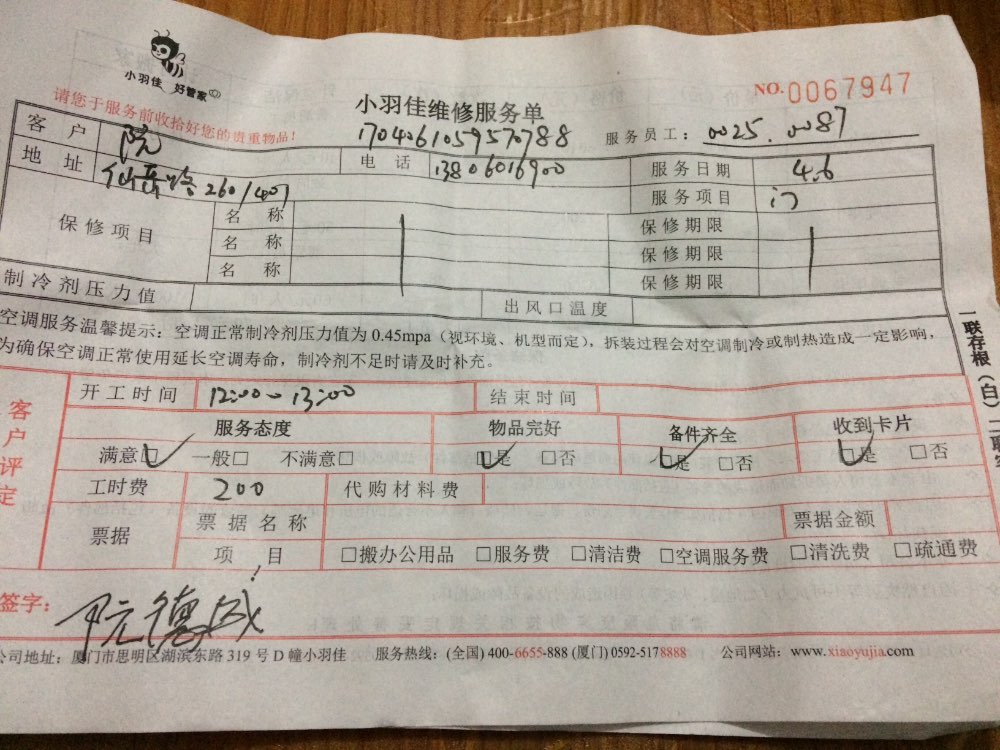 小羽佳 好管家
NO.0067947
请您于服务前收拾好您的贵重物品!
小羽佳维修服务单
1704061059570788
服务员工: 0025.0087
客户 阮 电话 13806016900 服务日期 4.6
地址 仙岳路260/407 服务项目 门
保修项目 名称 保修期限
名称 保修期限
名称 保修期限
制冷剂压力值 出风口温度
空调服务温馨提示: 空调正常制冷剂压力值为 0.45mpa (视环境、机型而定), 拆装过程会对空调制冷或制热造成一定影响,
为确保空调正常使用延长空调寿命, 制冷剂不足时请及时补充。
一联存根(白)二联客
客户评定
开工时间 12:00~13:00 结束时间
服务态度 物品完好 备件齐全 收到卡片
满意□ 一般□ 不满意□ □是 □否 □是 □否 □是 □否
工时费 200 代购材料费
票据 票据名称 票据金额
项目 □搬办公用品 □服务费 □清洁费 □空调服务费 □清洗费 □疏通费
签字: 阮德成
公司地址: 厦门市思明区湖滨东路 319 号 D 幢小羽佳 服务热线: (全国) 400-6655-888 (厦门) 0592-5178888 公司网站: www.xiaoyujia.com